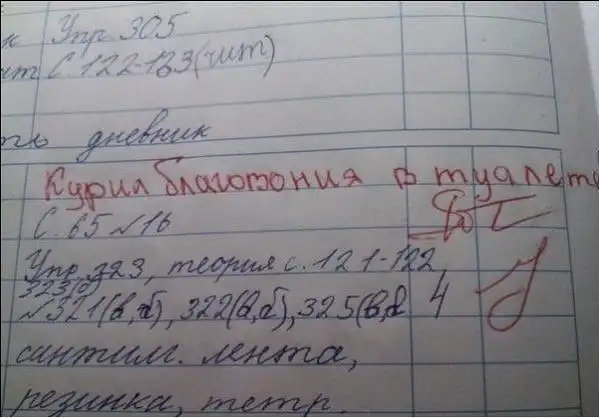 к Упр 305
ит С. 122-123 (чит)
ть дневник
Курил благовония в туалете
С. 65 №16
Упр. 323, теория с. 121-122,
323(б)
№321(в,б), 322(в,б), 325(в, 4
сантим. лента,
резинка, тетр.